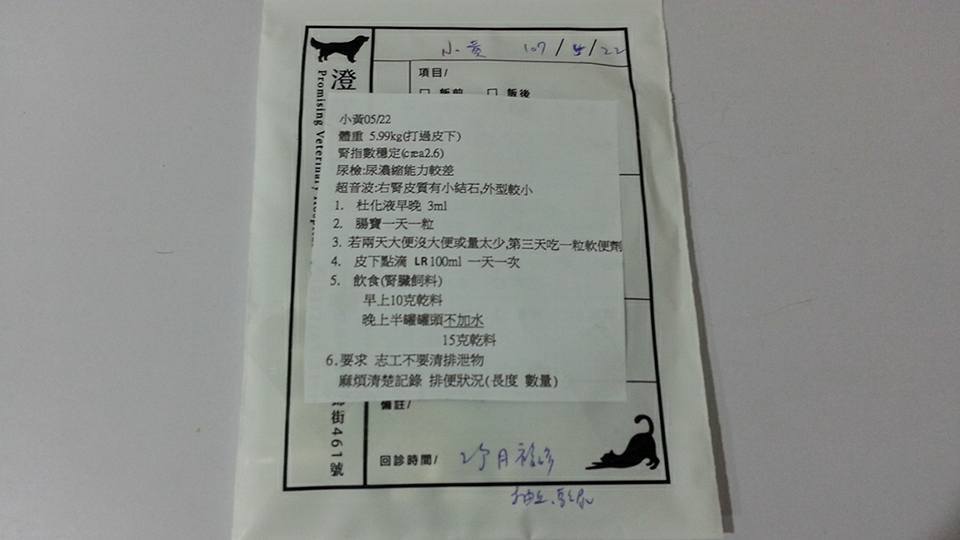 小黃 107/5/22
澄
Promising Veterinary
項目/
□ 飯前 □ 飯後
小黃05/22
體重 5.99kg(打過皮下)
腎指數穩定(crea2.6)
尿檢:尿濃縮能力較差
超音波:右腎皮質有小結石,外型較小
1. 杜化液早晚 3ml
2. 腸寶一天一粒
3. 若兩天大便沒大便或量太少,第三天吃一粒軟便劑
4. 皮下點滴 LR100ml 一天一次
5. 飲食(腎臟飼料)
早上10克乾料
晚上半罐罐頭不加水
15克乾料
6.要求 志工不要清排泄物
麻煩清楚記錄 排便狀況(長度 數量)
街461號
備註/
回診時間/ 2個月複診
抽血.驗尿